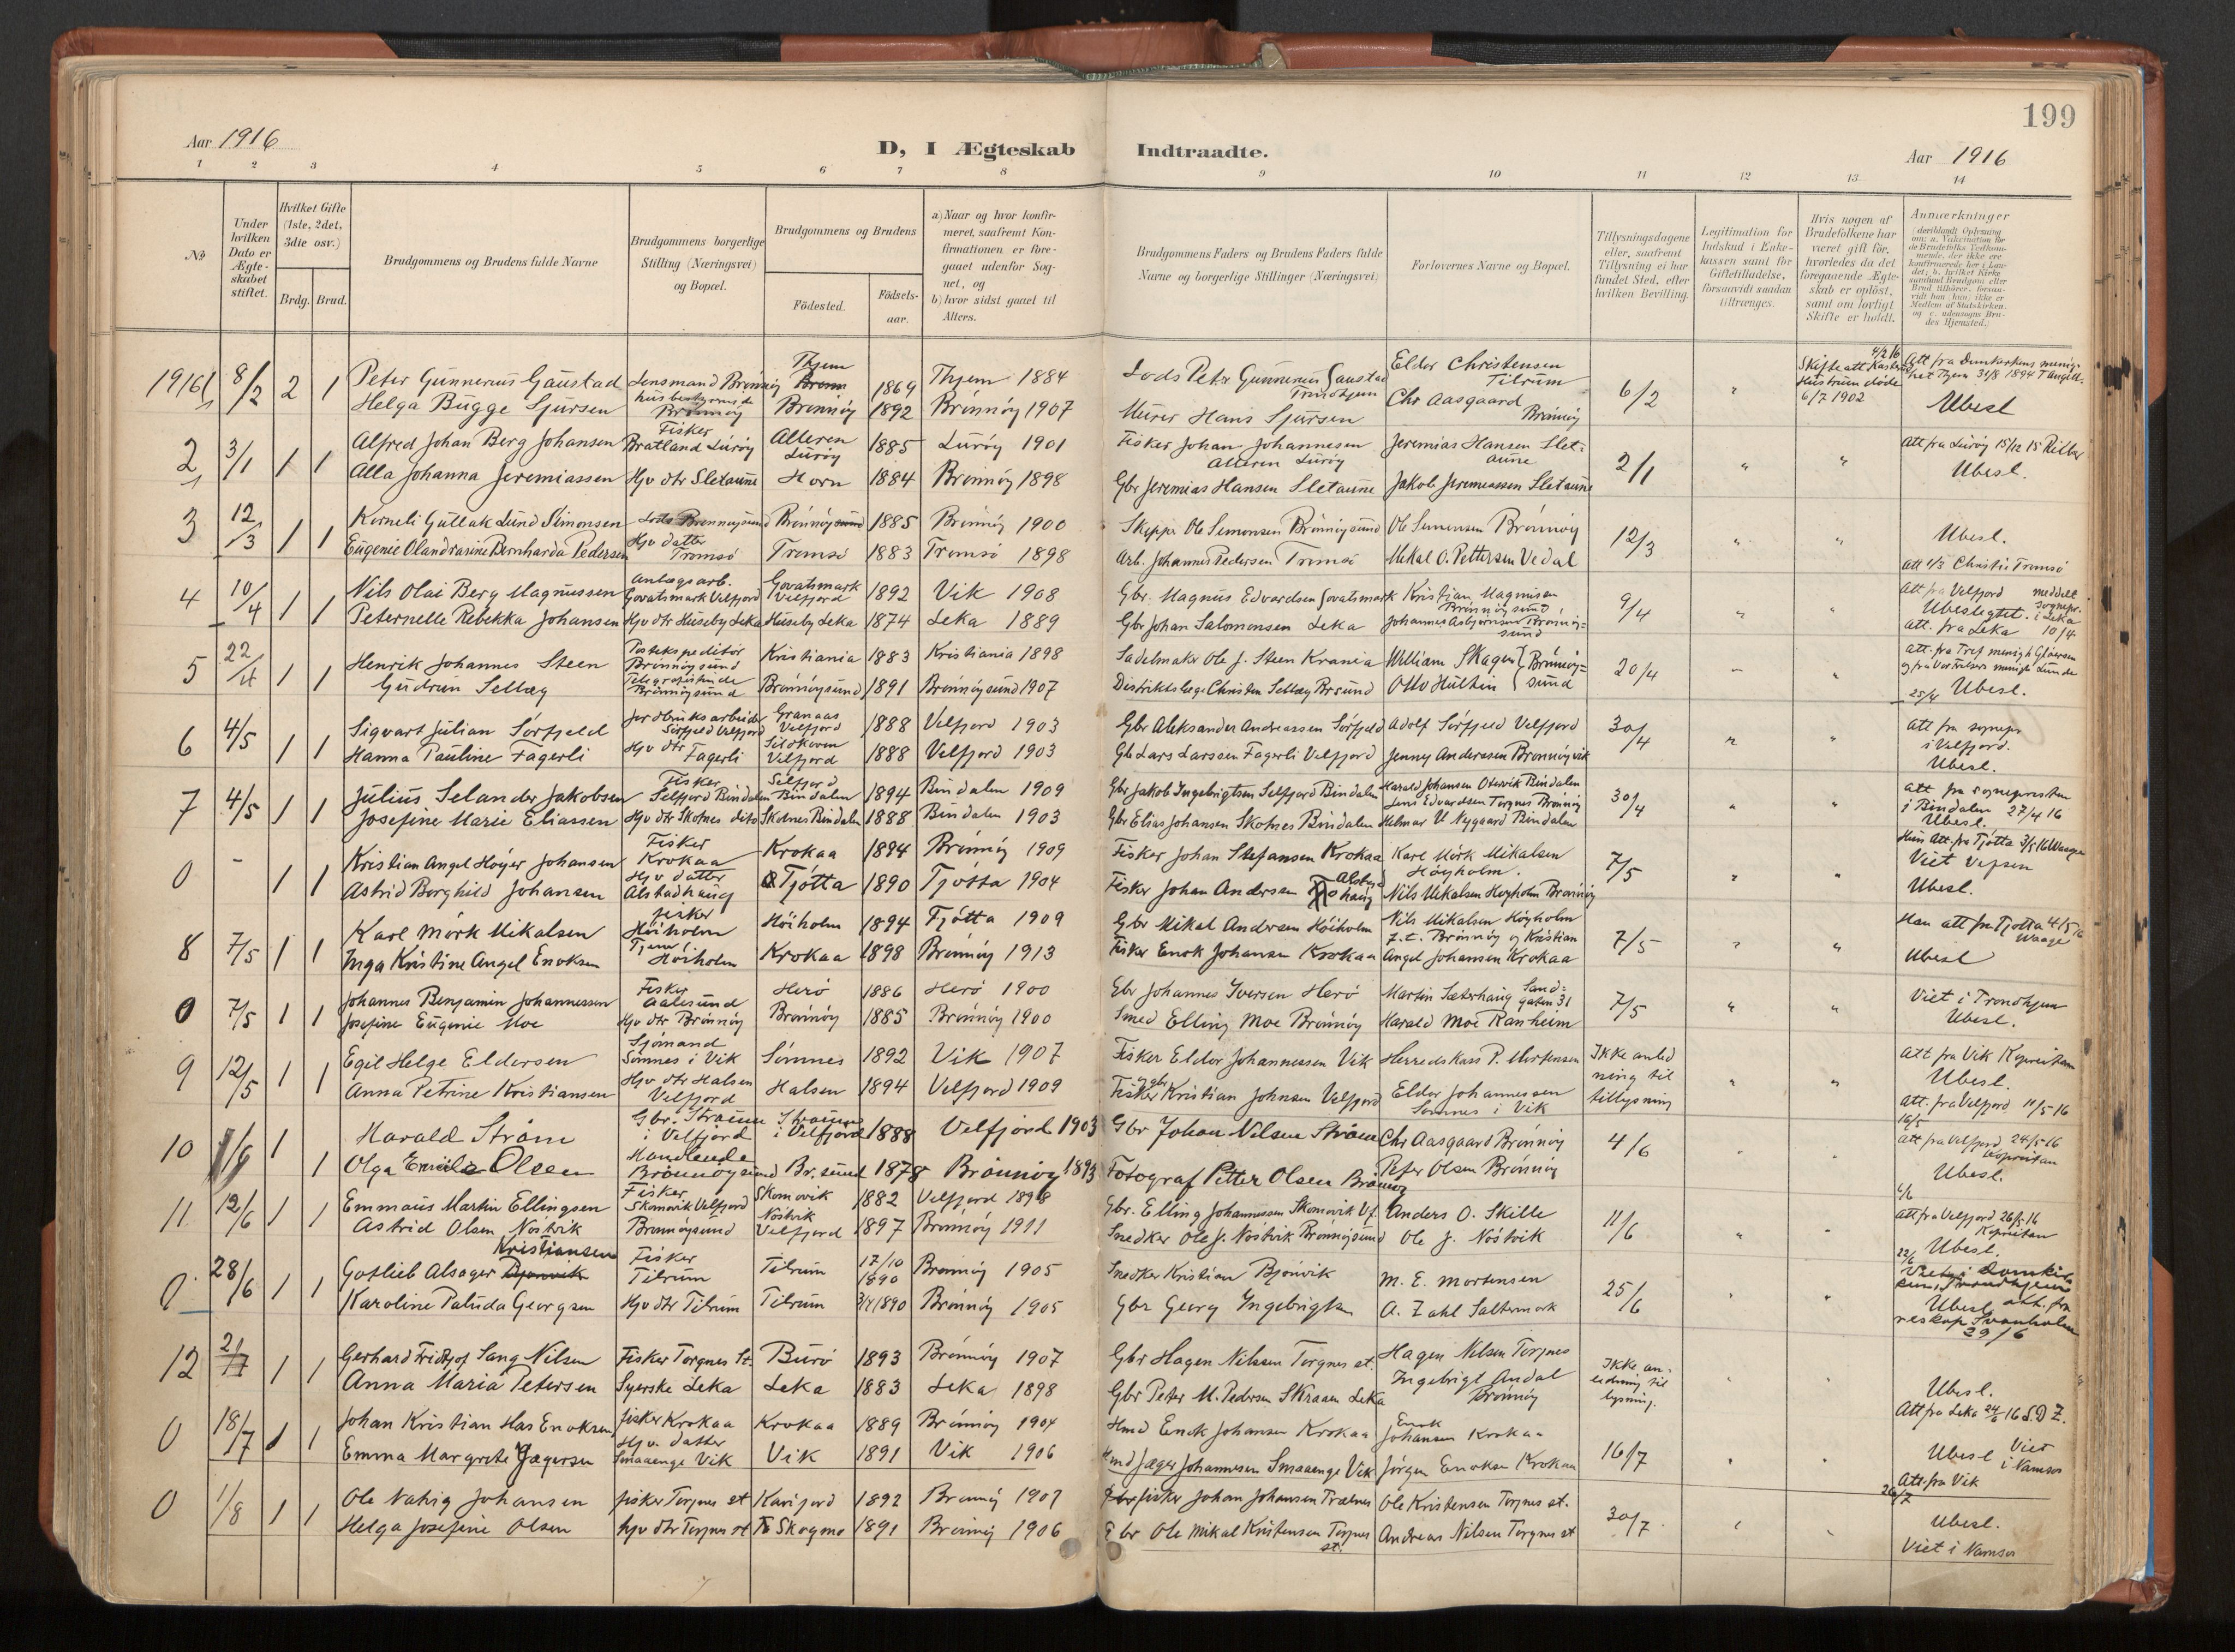 199
Aar 1916
D, I Ægteskab Indtraadte.
Aar 1916
1 2 3 4 5 6 7 8 9 10 11 12 13 14
No
Under hvilken Dato er Ægteskabet stiftet.
Hvilket Gifte (1ste, 2det, 3die osv.)
Brdg. Brud.
Brudgommens og Brudens fulde Navne
Brudgommens borgerlige Stilling (Næringsvei) og Bopæl.
Brudgommens og Brudens
Fødested.
Fødselsaar.
a) Naar og hvor konfirmeret, saafremt Konfirmationen er foregaaet udenfor Sognet, og
b) hvor sidst gaaet til Alters.
Brudgommens Faders og Brudens Faders fulde Navne og borgerlige Stillinger (Næringsvei)
Forlovernes Navne og Bopæl.
Tillysningsdagene eller, saafremt Tillysning ei har fundet Sted, efter hvilken Bevilling.
Legitimation for Indskud i Enkekassen samt for Giftetilladelse, forsaavidt saadan tiltrænges.
Hvis nogen af Brudefolkene har været gift før, hvorledes da det foregaaende Ægteskab er opløst, samt om lovligt Skifte er holdt.
Anmærkninger (deriblandt Oplysning om: a. Vakcination for de Brudefolks Vedkommende, der ikke ere konfirmerede her i Landet; b. hvilket Kirkesamfund Brudgom eller Brud tilhører, forsaavidt han (hun) ikke er Medlem af Statskirken, og c. udensogns Brudes Hjemsted.)
1916 1 8/2 2 1 Peter Gunnerius Gaustad Lensmand Brønnøy Thjem 1869 Thjem 1884 Lods Petr Gunnerius Gaustad Trondhjem Eldor Christensen Tilrum 6/2 " Skifte att 4/2 16 Hustruen døde 6/7 1902 Att fra Domkirkens menighet Tjem 31/8 1894
Helga Bugge Sjursen husbestyrerinde Brønnøy Brønnøy 1892 Brønnøy 1907 Murer Hans Sjursen Chr Aasgaard Brønnøy Ubesl
2 3/1 1 1 Alfred Johan Berg Johansen Fisker Bratland Lurøy Alteren Lurøy 1885 Lurøy 1901 Fisker Johan Johannesen Alteren Lurøy Jeremias Hansen Sletaune 2/1 " " Att fra Lurøy 15/12 15
Alla Johanna Jeremiassen Hjv dtr Sletaune Horn 1884 Brønnøy 1898 Gbr Jeremias Hansen Sletaune Jakob Jeremiassen Sletaune Ubesl.
3 12/3 1 1 Korneli Gullak Lund Simonsen Lods Brønnøysund Brønnøysund 1885 Brønnøy 1900 Skipper Ole Simonsen Brønnøysund Ole Simonsen Brønnøy 12/3 " " Ubesl.
Eugenie Olandrasine Bernharda Pedersen Hjv datter Tromsø Tromsø 1883 Tromsø 1898 Arb. Johannes Pedersen Tromsø Mikal O. Pettersen Vedal att 4/3 Christie Tromsø
4 10/4 1 1 Nils Olai Berg Magnussen Anlægsarb. Govatsmark Velfjord Govatsmark Velfjord 1892 Vik 1908 Gbr. Magnus Edvardsen Govatsmark Kristian Magnusen Brønnøysund 9/4 " " Att fra Velfjord meddelt sognepr. i Leka
Peternelle Rebekka Johansen Hjv dtr Huseby Leka Huseby Leka 1874 Leka 1889 Gbr Johan Salomonsen Leka Johannes Asbjørnsen Brønnøysund Ubeslegtet. att. fra Leka 10/4
5 22/4 1 1 Henrik Johannes Steen Postekspeditør Brønnøysund Kristiania 1883 Kristiania 1898 Sadelmaker Ole J. Steen Krania William Skagen Brønnøysund 20/4 – "
Gudrun Selläg Telegrafistinde Brønnøysund Brønnøysund 1891 Brønnøysund 1907 Distriktslæge Christen Selläg Brsund Otto Hultin 25/4 Ubesl.
6 4/5 1 1 Sigvart Julian Sørfjeld Jordbruksarbeider Sørfjeld Velfjord Granaas Velfjord 1888 Velfjord 1903 Gbr Aleksander Andreassen Sørfjeld Adolf Sørfjeld Velfjord 30/4 " " Att fra sognepr i Velfjord.
Hanna Pauline Fagerli Hjv dtr Fagerli Sildhovn Velfjord 1888 Velfjord 1903 Gbr Lars Larssen Fagerli Velfjord Jenny Anderssen Brønnøyvik Ubesl.
7 4/5 1 1 Julius Selander Jakobsen Fisker Selfjord Bindalen Selfjord Bindalen 1894 Bindalen 1909 Gbr Jakob Ingebrigtsen Selfjord Bindalen Harald Johansen Otervik Bindalen Edvardsen Torgnes Brønnøy 30/4 " " att fra sognepresten i Bindalen 27/4 16
Josefine Marie Eliassen Hjv dtr Skotnes dito Skotnes Bindalen 1888 Bindalen 1903 Gbr Elias Johansen Skotnes Bindalen Helmar U Nygaard Bindalen Ubesl.
0 – 1 1 Kristian Angel Høyer Johansen Fisker Krokaa Krokaa 1894 Brønnøy 1909 Fisker Johan Stefansen Krokaa Karl Mørk Mikalsen Høyholm. 7/5 " " Hun Att. fra Tjøtta 3/5 16 Waage Viet Vefsen
Astrid Borghild Johansen Hjv datter Alstadhaug Tjøtta 1890 Tjøtta 1904 Fisker Johan Andersen Nils Mikalsen Høyholm Brønnøy Ubesl.
8 7/5 1 1 Karl Mørk Mikalsen fisker Høiholm Høiholm 1894 Tjøtta 1909 Gbr Mikal Andersen Høiholm Nils Mikalsen Høyholm 7/5 " " Han att fra Tjøtta 4/5 16 Waage
Inga Kristine Angel Enoksen Høiholm Krokaa 1898 Brønnøy 1913 Fisker Enok Johansen Krokaa f.t. Brønnøy og Kristian Angel Johansen Krokaa Ubesl
0 7/5 1 1 Johannes Benjamin Johannessen Fisker Aalesund Herø 1886 Herø 1900 Gbr Johannes Iversen Herø Martin Sæterhaug Sandgaten 31 7/5 " " Viet i Trondhjem
Josefine Eugenie Moe Hjv dtr Brønnøy Brønnøy 1885 Brønnøy 1900 Smed Elling Moe Brønnøy Harald Moe Ranheim Ubesl.
9 12/5 1 1 Egil Helge Eldorsen Sjømand Sømnes i Vik Sømnes 1892 Vik 1907 Fisker Eldor Johannessen Vik Herredskass P. Mortensen Ikke anledning til tillysning " " Att fra Vik
Anna Petrine Kristiansen Hjv dtr Halsen Velfjord Halsen 1894 Velfjord 1909 Fisker og gbr Kristian Johnsen Velfjord Eldor Johannessen Sømnes i Vik Ubesl. att. fra Velfjord 11/5 16
10 1/6 1 Harald Strøm Gbr. Straum i Velfjord Straum i Velfjord 1888 Velfjord 1903 Gbr Johan Nilsen Strøm Chr Aasgaard Brønnøy 4/6 " " att fra Velfjord 24/5 16
1 Olga Emilie Olsen Handlende Brønnøysund Br.sund 1878 Brönnöy 1893 Fotograf Petter Olsen Brönnöy Peter Olsen Brønnøy Ubesl.
11 12/6 1 1 Emmaus Martin Ellingsen Fisker Skomovik Velfjord Skomovik 1882 Velfjord 1898 Gbr. Elling Johannessen Skomovik Vf. Anders O. Skille 11/6 " " att fra Velfjord 26/5 16
Astrid Olsen Nøstvik Brønnøysund Nøstvik Velfjord 1897 Brønnøy 1911 Snedker Ole J. Nøstvik Brønnøysund Ole J. Nøstvik Ubesl.
0 28/6 1 1 Gotlieb Alsager Kristiansen Fisker Tilrum Tilrum 17/10 1890 Brønnøy 1905 Snedker Kristian Bjønvik M. E. Mortensen 25/6
Karoline Paluda Georgsen Hjv dtr Tilrum Tilrum 3/4 1890 Brønnøy 1905 Gbr Georg Ingebrigtsen A. Zahl Saltermark Ubesl att. fra
12 21/7 1 1 Gerhard Fridtjof Sang Nilsen Fisker Torgnes St. Burø 1893 Brønnøy 1907 Gbr Hagen Nilssen Torgnes st. Hagen Nilsen Torgnes Ikke anledning til lysning.
Anna Maria Petersen Syerske Leka Leka 1883 Leka 1898 Gbr Peter M. Pedersen Skraaen Leka Ingebrigt Andal Brønnøy Ubesl. Att fra Leka 24/6 16 S.D.Z.
0 18/7 1 1 Johan Kristian Has Enoksen fisker Krokaa Krokaa 1889 Brønnøy 1904 Hmd Enok Johansen Krokaa Enok Johansen Krokaa 16/7
Emma Margrete Jægersen Hjv. datter Smaaenge Vik Vik 1891 Vik 1906 Hmd Jæger Johannesen Smaaenge Vik Jørgen Enoksen Krokaa Ubesl Viet i Namsos Att. fra Vik
0 1/8 1 1 Ole Nahig Johansen fisker Torgnes st Karifjord 1892 Brønnøy 1907 fisker Johan Johansen Trælnes Ole Kristensen Torgnes st. 30/7 Ubesl.
Helga Josefine Olsen hjv dtr Torgnes st Skogmo 1891 Brønnøy 1906 Gbr Ole Mikal Kristensen Torgnes st. Andreas Nilsen Torgnes st Viet i Namsos